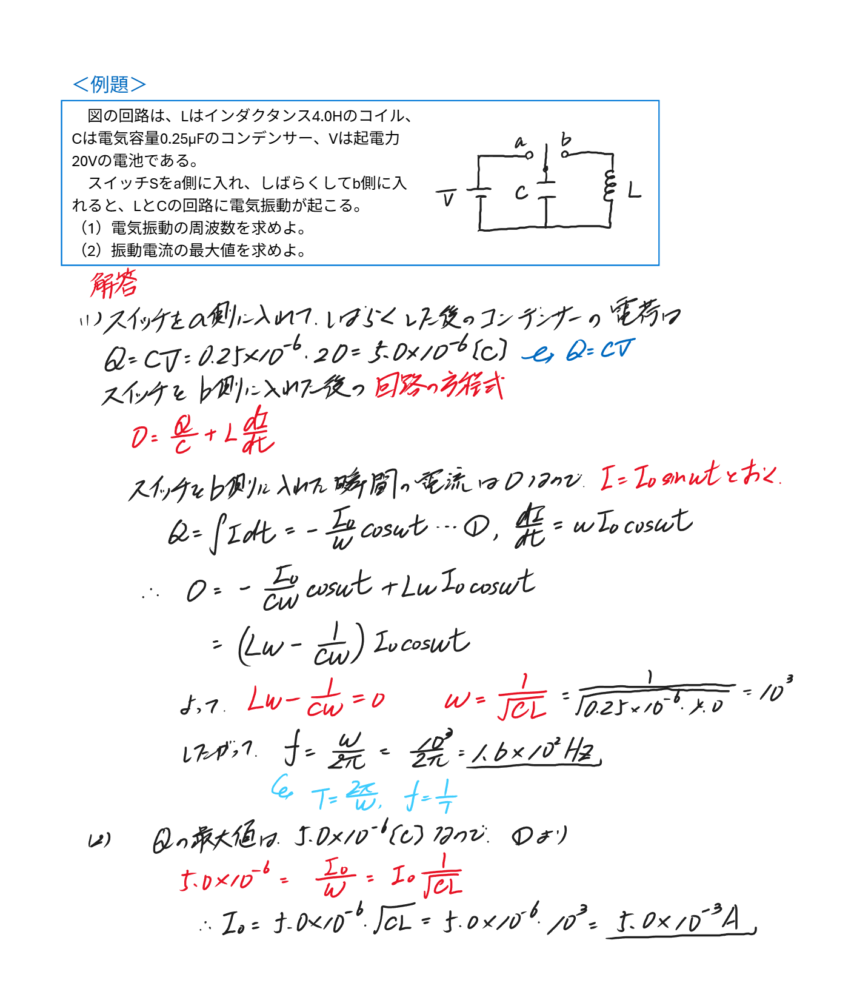 ＜例題＞
図の回路は、Lはインダクタンス4.0Hのコイル、
Cは電気容量0.25μFのコンデンサー、Vは起電力
20Vの電池である。
スイッチSをa側に入れ、しばらくしてb側に入
れると、LとCの回路に電気振動が起こる。
（1）電気振動の周波数を求めよ。
（2）振動電流の最大値を求めよ。
a b
V C L
解答
(1) スイッチをa側に入れて、しばらくした後のコンデンサーの電荷は
Q=CV=0.25×10⁻⁶・20=5.0×10⁻⁶[C] Q=CV
スイッチをb側に入れた後の回路の方程式
0=Q/C+L dI/dt
スイッチをb側に入れた瞬間の電流は0なので、I=I₀sinωtとおく。
Q=∫Idt=-I₀/ω cosωt…①, dI/dt=ωI₀cosωt
∴ 0=-I₀/Cω cosωt+LωI₀cosωt
=(Lω-1/Cω)I₀cosωt
よって、Lω-1/Cω=0 ω=1/√CL=1/√0.25×10⁻⁶・4.0=10³
したがって、f=ω/2π=10³/2π=1.6×10²Hz
T=2π/ω, f=1/T
(2) Qの最大値は、5.0×10⁻⁶[C]なので、①より
5.0×10⁻⁶=I₀/ω=I₀ 1/√CL
∴I₀=5.0×10⁻⁶・√CL=5.0×10⁻⁶・10³=5.0×10⁻³A